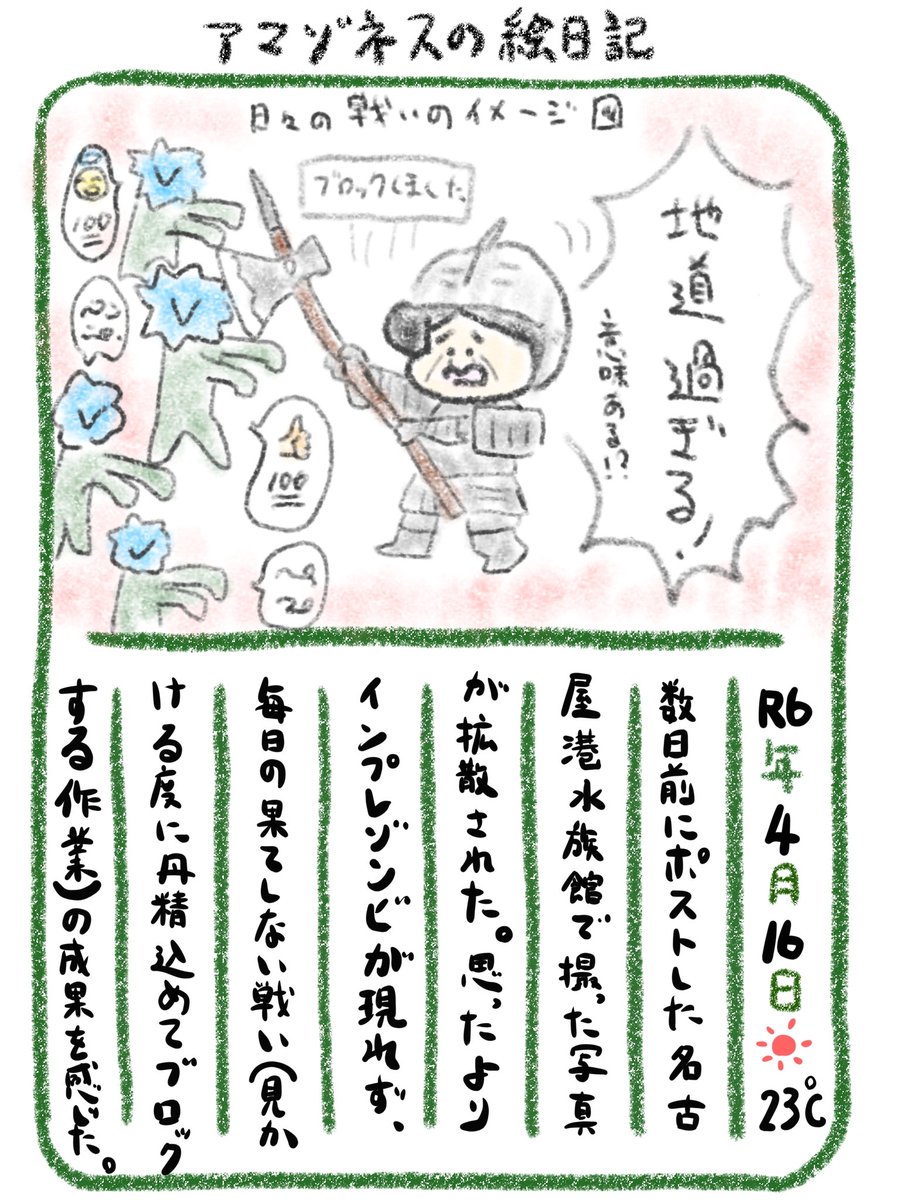 アマゾネスの絵日記
日々の戦いのイメージ図
ブロックしました
地道過ぎる!
意味ある!?
100
100
R6年4月16日 23℃
数日前にポストした名古
屋港水族館で撮った写真
が拡散された。思ったより
インプレゾンビが現れず、
毎日の果てしない戦い(見か
ける度に丹精込めてブロック
する作業)の成果を感じた。